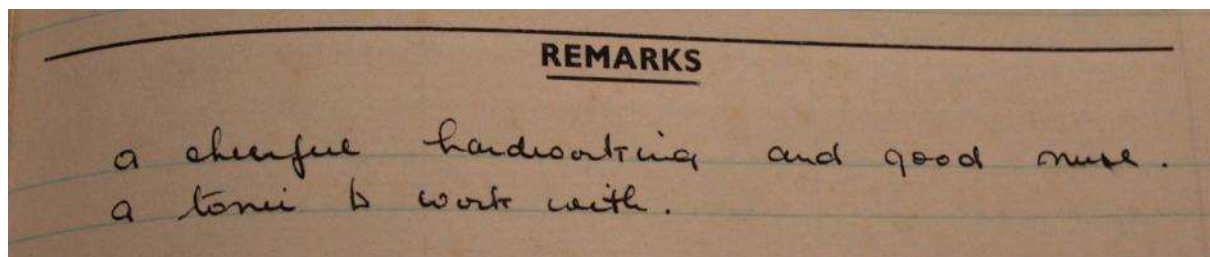 REMARKS
a cheerful hardworking and good nurse.
a tonic to work with.